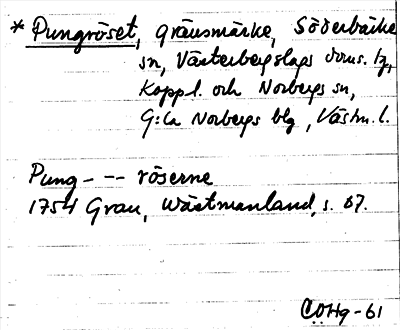 * Pungröset, gränsmärke, Söderbärke
sn, Västerbergslags doms. tg,
Koppl. och Norbergs sn,
G:la Norbergs blg, Västm. l.
Pung- -- röserne
1754 Grau, Wästmanland, s. 67.
CÖHg-61